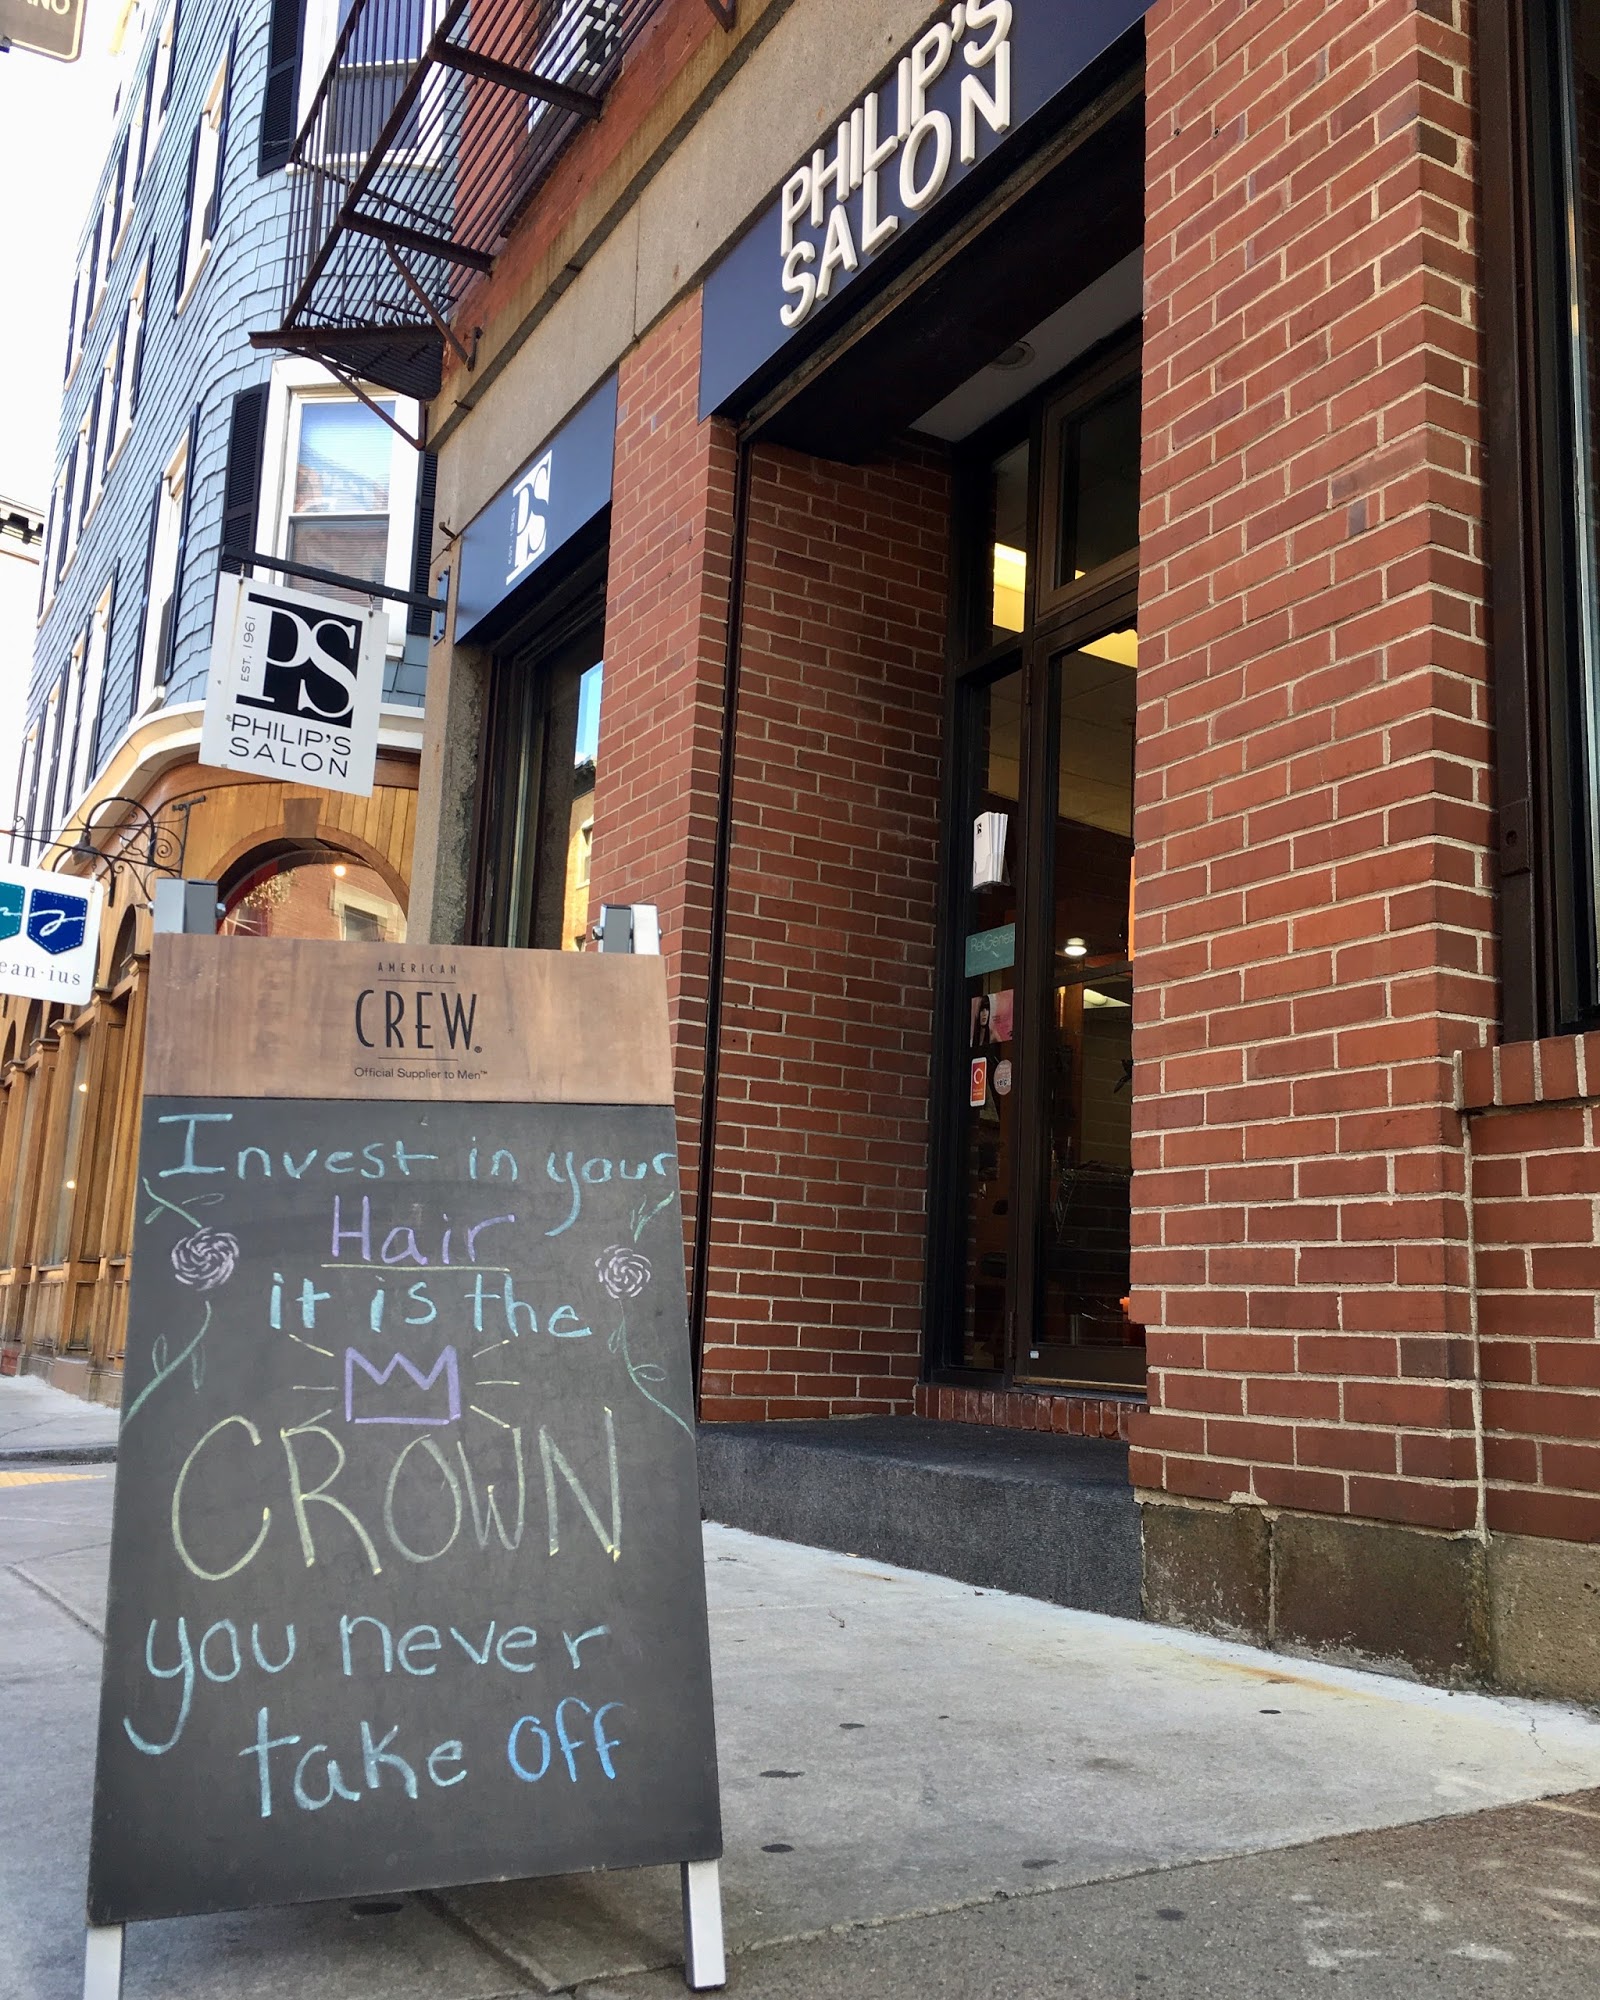 PHILIP'S
SALON
PS
EST. 1961
EST. 1961
PS
PHILIP'S
SALON
ean·ius
AMERICAN
CREW®
Official Supplier to Men™
Invest in your
Hair
it is the
CROWN
you never
take off